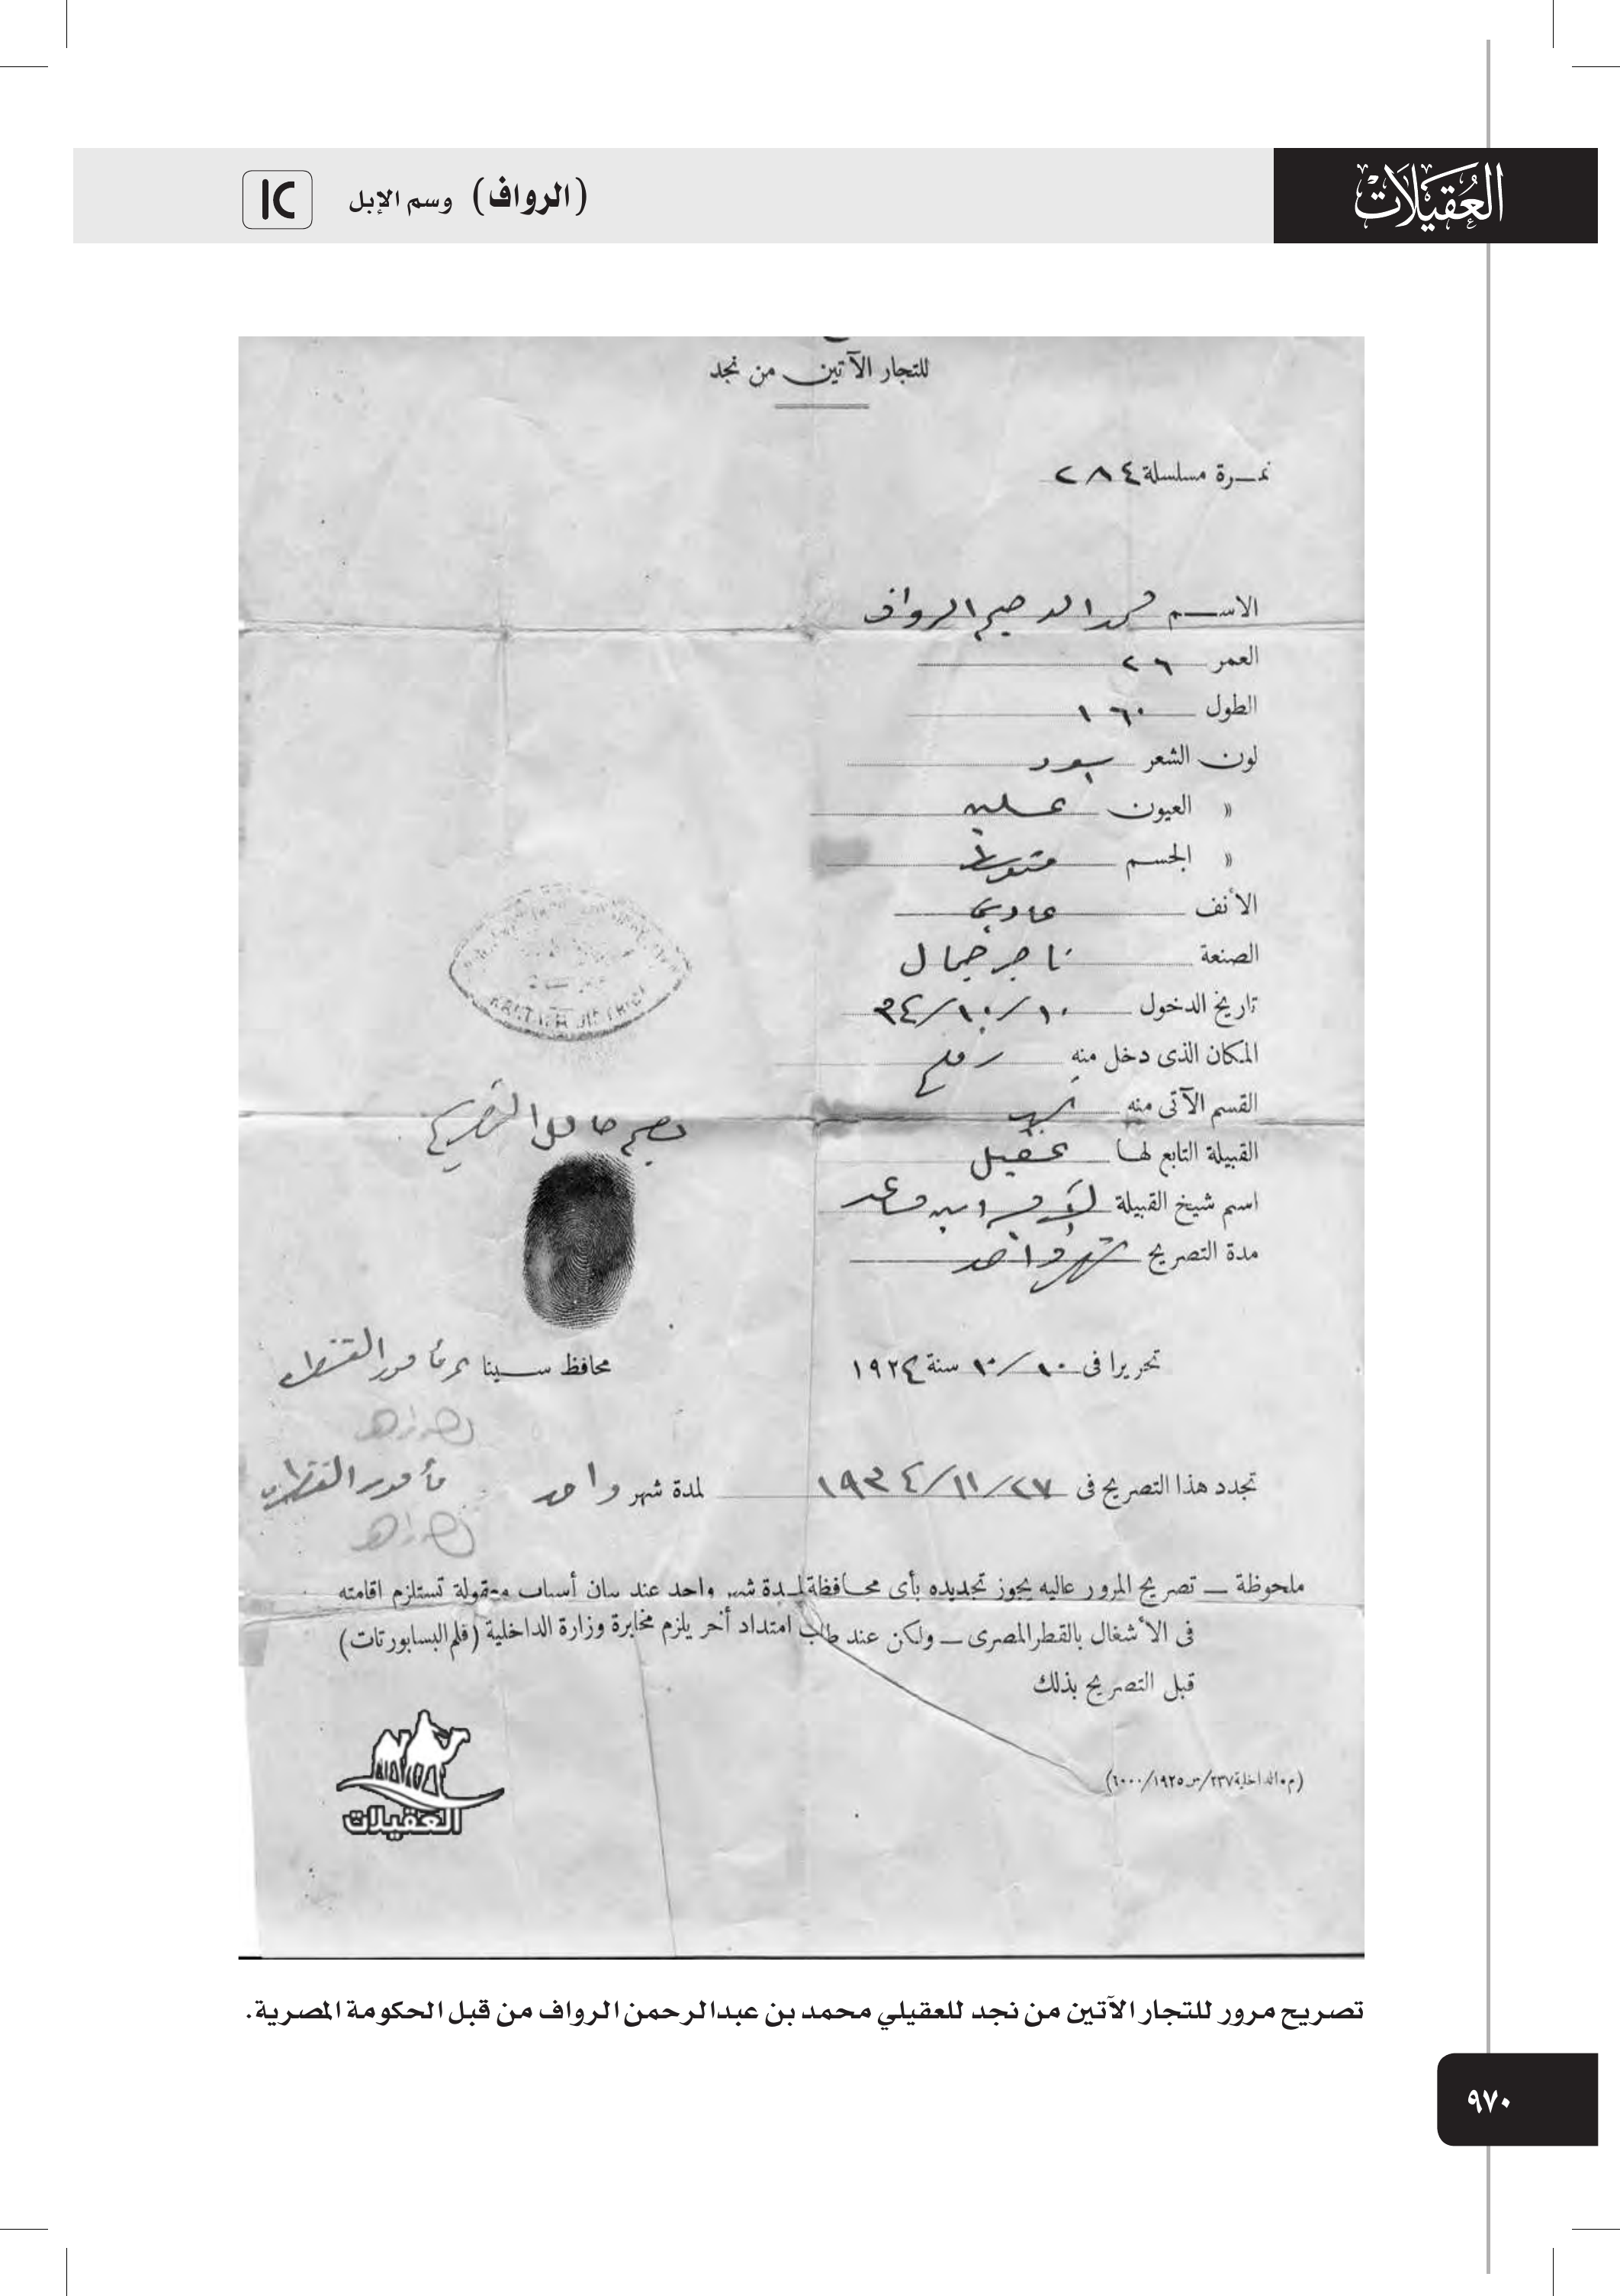 العقيلات
(الرواف) وسم الإبل
للتجار الآتين من نجد
نمرة مسلسلة ٢٨٤
الاسم محمد الرحيم الرواف
العمر ٢٦
الطول ١٦٠
لون الشعر اسود
» العيون عسلية
» الجسم متوسط
الأنف عادي
الصنعة تاجر جمال
تاريخ الدخول ١٠/١٠/٣٤
المكان الذى دخل منه رفح
القسم الآتى منه
القبيلة التابع لها عقيل
اسم شيخ القبيلة مساعد
مدة التصريح شهر واحد
بصمة حامل التصريح
تحريرا فى ١٠/١٠ سنة ١٩٢٤
محافظ سينا مأمور القنطرة
تجدد هذا التصريح فى ٢٧/١١/١٩٣٤ لمدة شهر واحد مأمور القنطرة
ملحوظة – تصريح المرور عاليه يجوز تجديده بأى محافظة لمدة شهر واحد عند بيان أسباب معقولة تستلزم اقامته
فى الأشغال بالقطر المصرى – ولكن عند طلب امتداد أخر يلزم مخابرة وزارة الداخلية (قلم البسابورتات)
قبل التصريح بذلك
(م. الداخلية ٢٣٧/س ١٩٢٥/٦٠٠٠)
العقيلات
تصريح مرور للتجار الآتين من نجد للعقيلي محمد بن عبدالرحمن الرواف من قبل الحكومة المصرية.
٩٧٠